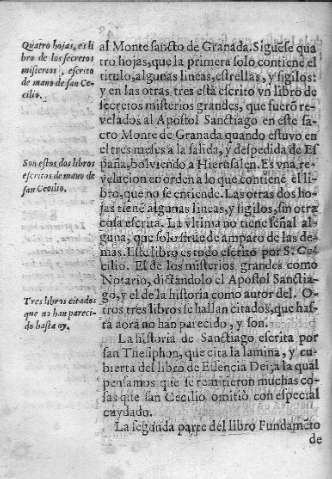 Quatro hojas, es li
bro de los secretos
misterios, escrito
de mano de san Ce-
cilio.
Son estos dos libros
escritos de mano de
san Cecilio.
Tres libros citados
que no han pareci-
do hasta oy.
al Monte sancto de Granada. Siguese qua
tro hojas, que la primera solo contiene el
titulo, algunas lineas, estrellas, y sigilos:
y en las otras tres está escrito vn libro de
secretos misterios grandes, que fuerō re-
velados al Apostol Sanctiago en este sa-
cro Monte de Granada quando estuvo en
el tres meses a la salida, y despedida de Es
paña, bolviendo a Hierusalen. Es vna re-
velacion en orden a lo que contiene el li-
bro, que no se entiende. Las otras dos ho-
jas tiene algunas lineas, y sigilos, sin otra
cosa escrita. La vltima no tiene señal al-
guna, que solo sirue de amparo de las de-
mas. Este libro es todo escrito por S. Ce-
cilio. El de los misterios grandes como
Notario, dictandolo el Apostol Sanctia-
go, y el de la historia como autor del. O-
tros tres libros se hallan citados, que has-
ta aora no han parecido, y son.
La historia de Sanctiago escrita por
san Thesiphon, que cita la lamina, y cu-
bierta del libro de Essencia Dei; a la qual
pensamos que se remitieron muchas co-
sas que san Cecilio omitiò con especial
cuydado.
La segunda parte del libro Fundamēto
de